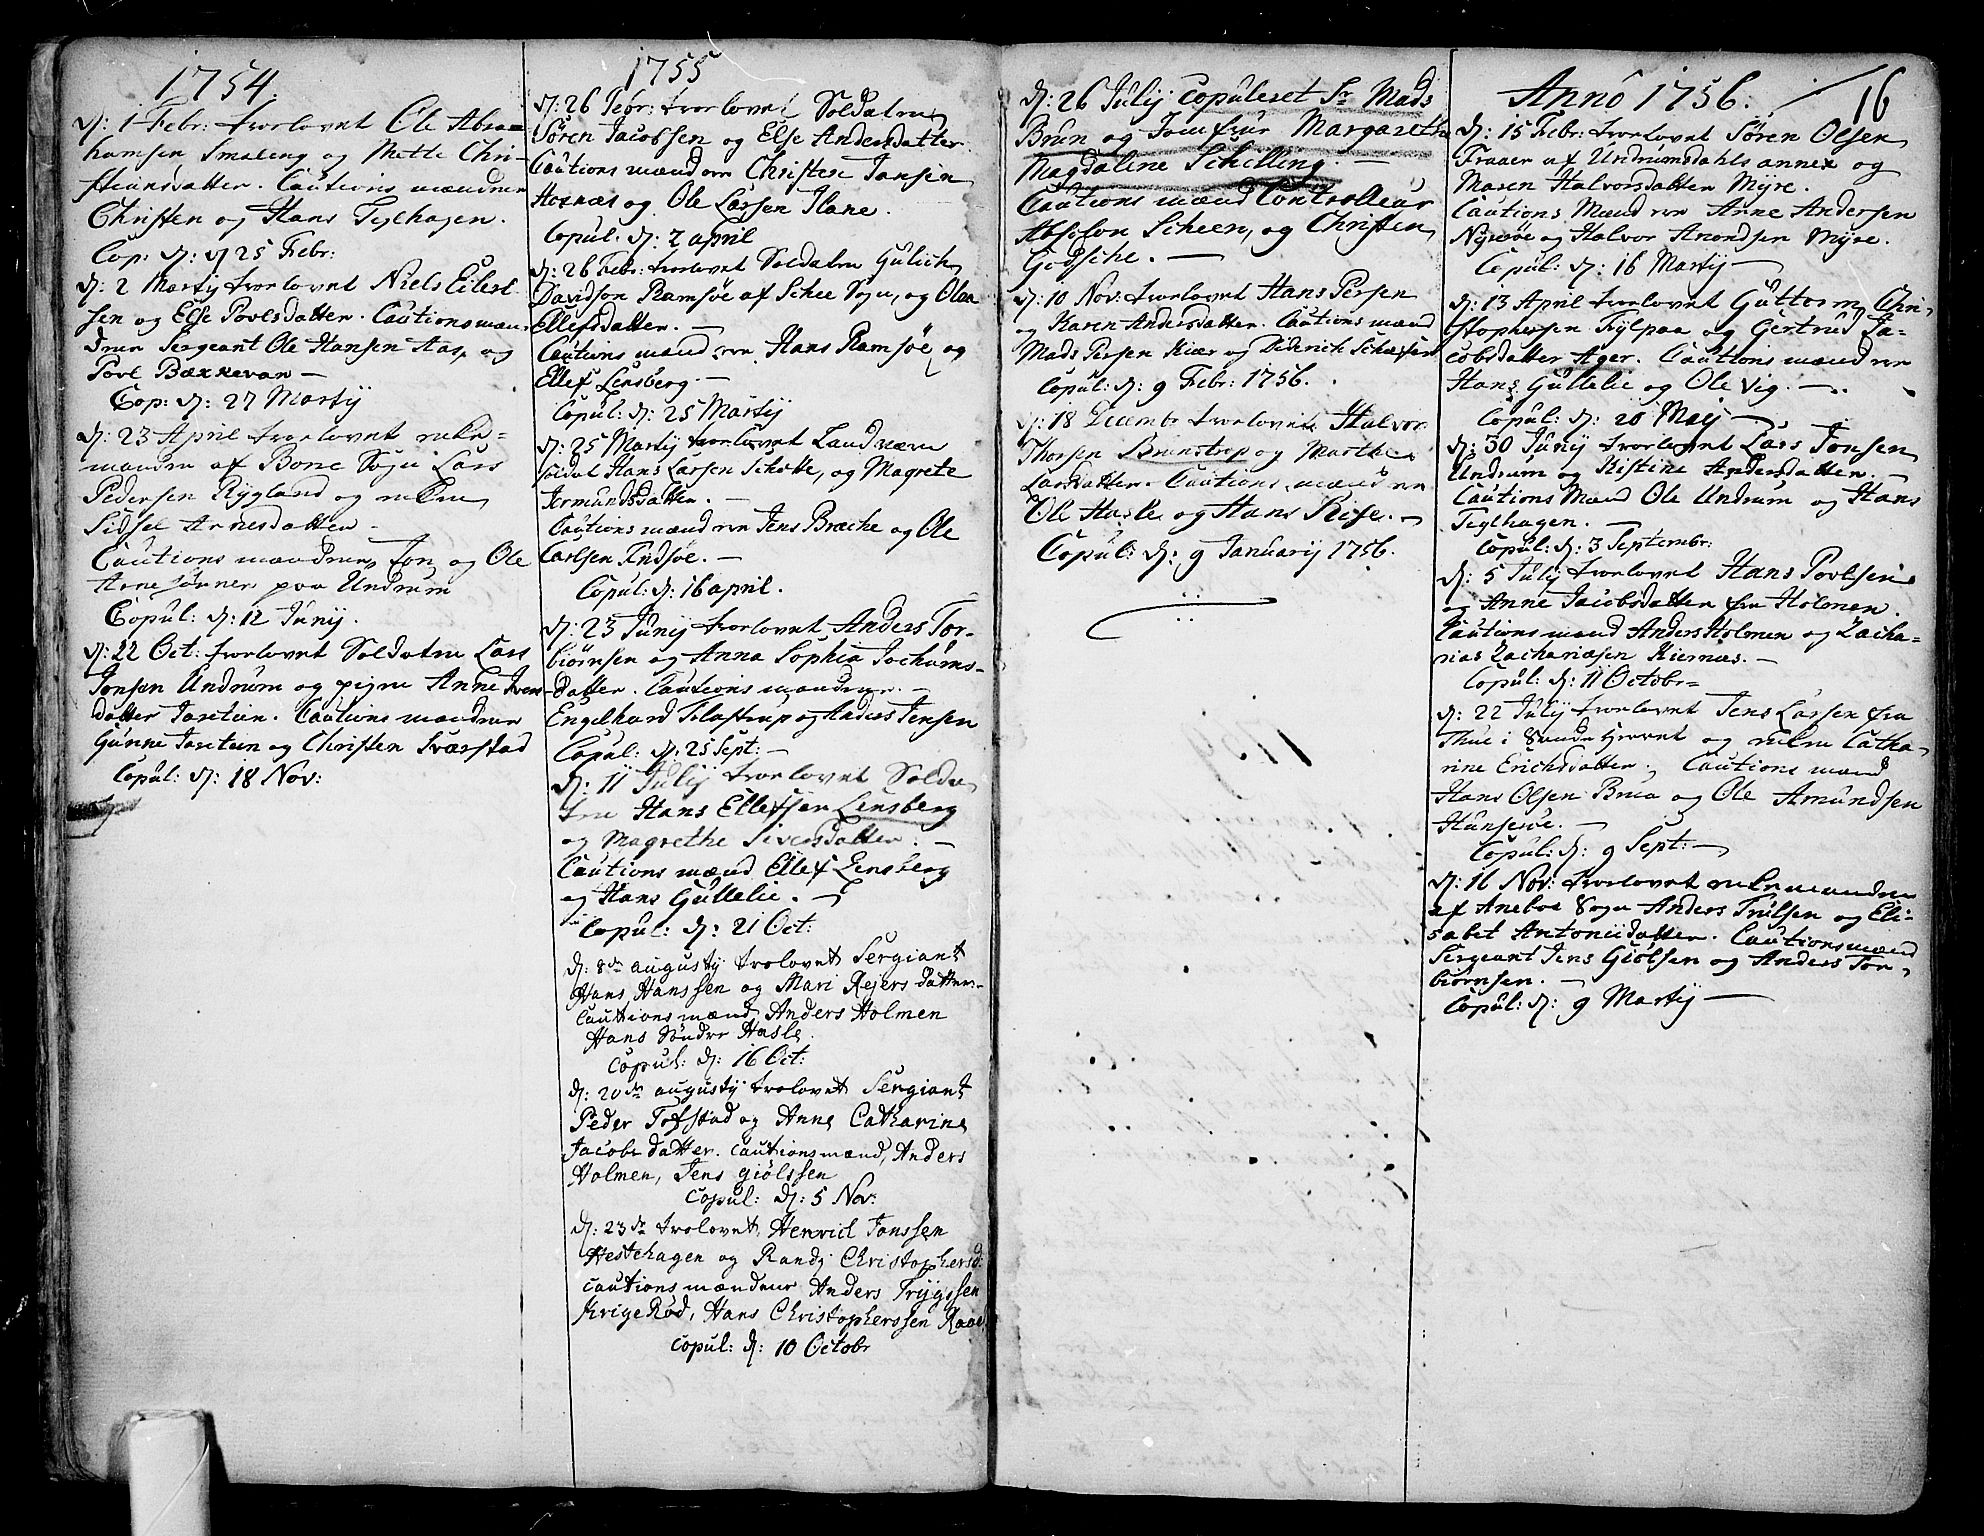 1754.
d: 1 Febr: trolovet Ole Abra=
hamsen Smaleng og Mette Chri=
stiansdatter. Cautions mændene
Christen og Hans Teglhagen.
Cop: d: 25 Febr:
d: 2 Martij trolovet Niels Eilert
sen og Else Povlsdatter. Cautionsmæn
dene Sergeant Ole Hansen Aas, og
Povl Bækkevar —
Cop: d: 27 Martij
d: 23 April trolovet
manden af Borre Sogn Lars
Pedersen Rygland og
Sidsel Arnesdatter —
Cautions mændene Jon og Ole
Arne sønner paa Undrum
Copul: d: 12 Junij.
d: 22 Oct: trolovet Soldaten Lars
Jonsen Undrum og pigen Anne Iver
datter Jareteien. Cautions mændene
Gunne Jareteien og Christen Sværstad
Copul: d: 18 Nov:
1755
d: 26 Febr: trolovet Soldaten
Sören Jacobsen og Else Andersdatter
Cautions mænd ere Christen Jansen
Hoxnæs og Ole Larsen Ilane.
Copul: d: 2 april
d: 26 Febr: trolovet Soldaten Gulich
Davidson Ramsøe af Schee Sogn, og Olea
Ellefsdatter. —
Cautions mænd ere Hans Ramsøe og
Ellef Lensberg. —
Copul: d: 25 Martij
d: 25 Martij trolovet Landværn
soldat Hans Larsen Schotte, og Magrete
Jermundsdatter. —
Cautions mænd ere Jens Bræche og Ole
Carlsen Endsøe. —
Copul: d: 16 april.
d: 23 Junij trolovet Anders Tor=
biørnsen og Anna Sophia Jochums=
datter. Cautions mændene. —
Engelhard Tolastrup og Anders Jensen
Copul: d: 25 Sept: —
d: 11 Julij trolovet Solda
ten Hans Ellefssen Lensberg
og Magrethe Siversdatter. —
Cautions mænd Ellef Lensberg
og Hans Gullelie. —
Copul: d: 21 Oct:
d: 8de augustij trolovet Sergiant
Hans Hanssen og Mari Rejers datter.
Cautions mænd Anders Holmen
Hans Søndre Hasle.
Copul: d: 16 Oct:
d: 20de augustij trolovet Sergiant
Peder Tofstad og Anne Catharine
Jacobs datter. Cautions mænd, Anders
Holmen, Jens Giølssen
Copul: d: 5 Nov:
d: 23de trolovet Henrich Jonssen
Hestehagen og Randj Christophersd:
Cautions mændene Anders Trygssen
KrigeRød, Hans Christopherssen Raae
Copul: d: 10 Octobr
d: 26 Julij copuleret Sr Mads
Brun og Jomfrue Margaretha
Magdaline Schilling. —
Cautions mænd Controlleur
Absolon Scheen, og Christen
Godsche. —
d: 10 Nov: trolovet Hans Persen
og Karen Andersdatter. Cautions mænd
Mads Persen Kiær og Diderich Schæfsen
Copul: d: 9 Febr: 1756.
d: 18 Decembr trolovet Halvor
Thorsen Brunstrop og Marthe
Larsdatter. Cautions mænd ere
Ole Hasle og Hans Rise. —
Copul: d: 9 Januarij 1756.
Anno 1756.
16
d: 15 Febr: trolovet Søren Olsen
Fraaer af Undrumsdahls annex og
Maren Halvorsdatter Myre.
Cautions Mænd ere Arne Andersen
Nysrøe og Halvor Amondsen Myre.
Copul: d: 16 Martij —
d: 13 April trolovet Guttorm Chri=
stophersen Fylpaa og Giertrud Ja=
cobsdatter Ager. Cautions mænd ere
Hans Gullelie og Ole Vig. —
Copul: d: 20 Maij —
d: 30 Junij trolovet Lars Jonsen
Undrum og Kistine Andersdatter. —
Cautions Mænd Ole Undrum og Hans
Teglhagen. —
Copul: d: 3 Septembr:
d: 5 Julij trolovet Hans Povlsen
og Anne Jacobsdatter fra Holmen.
Cautions mænd Anders Holmen og Zacha=
rias Zachariæsen Kiernæs. —
Copul: d: 11 Octobr=
d: 22 Julij trolovet Jens Larsen fra
Thue i Sande Grevet og Catha=
rine Erichsdatter. Cautions mænd
Hans Olsen Brua og Ole Amundsen
Hunserøe. —
Copul: d: 9 Sept: —
d: 16 Nov: trolovet
af Aneboe Sogn Anders Trulsen og Eli=
sabet Antoniidatter. Cautionsmænd
Sergeant Jens Giølsen og Anders Tor=
biørnsen. —
Copul: d: 9 Martij —